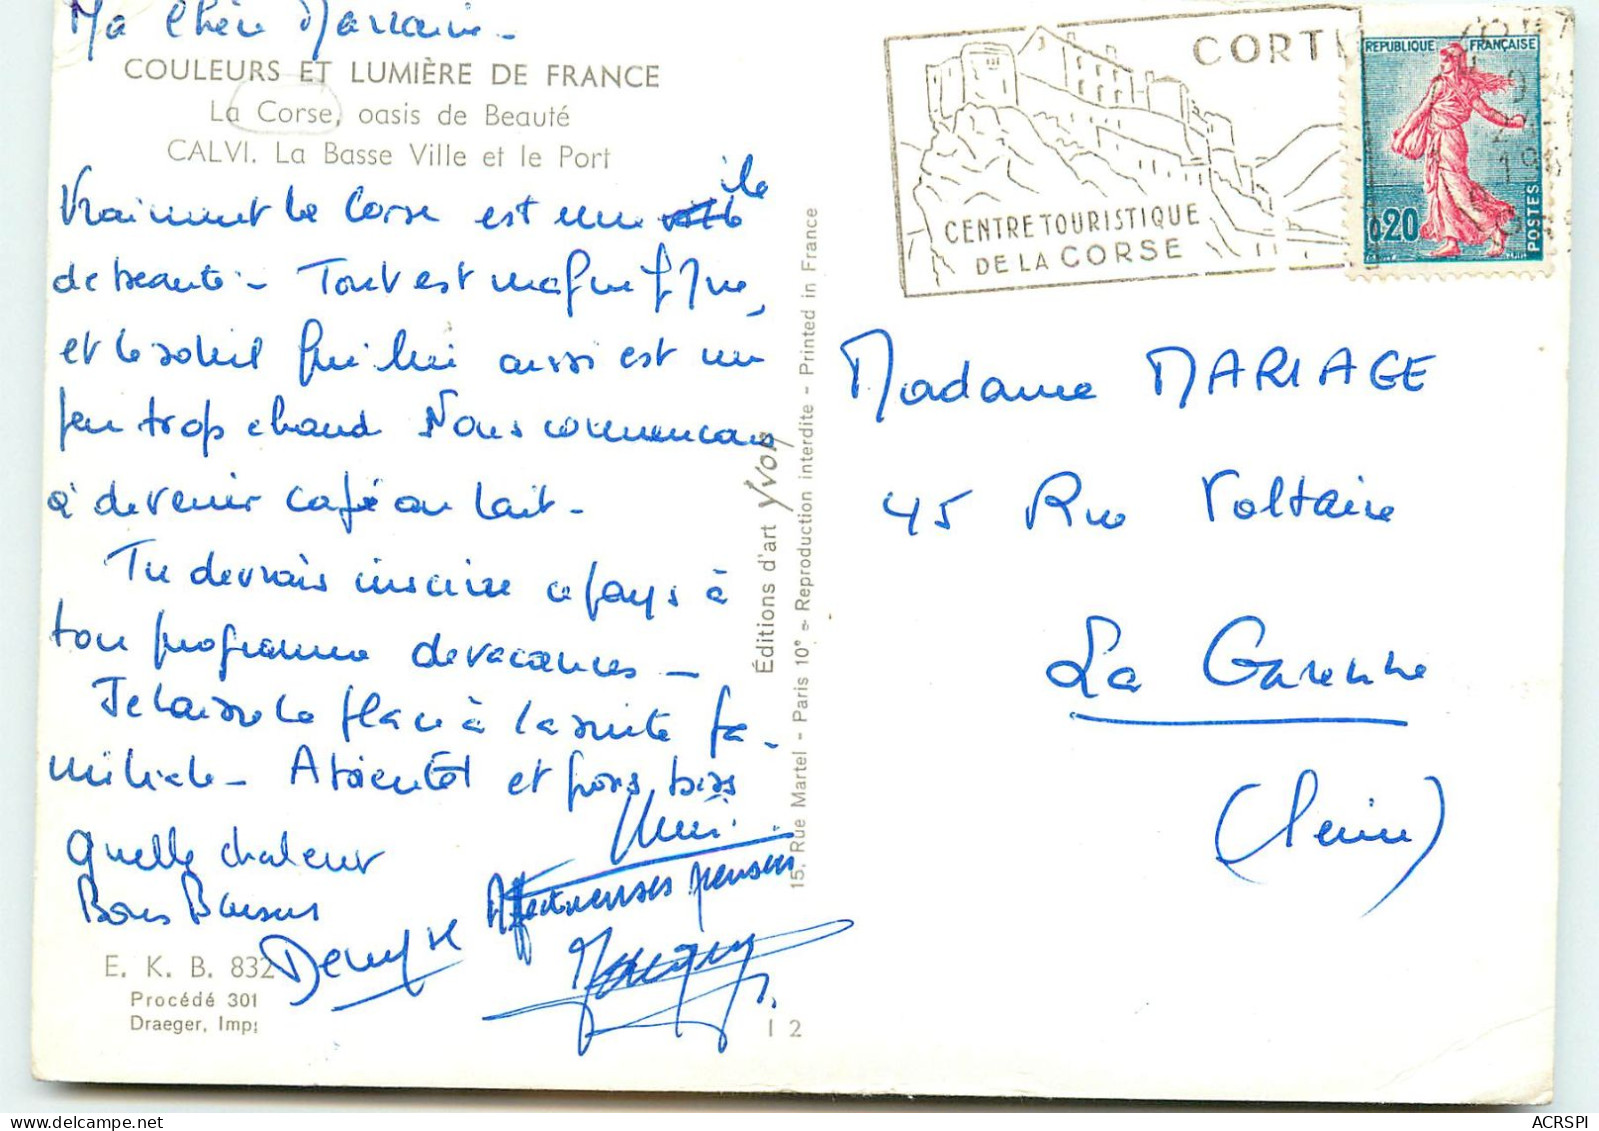 Ma Chère Marraine -
COULEURS ET LUMIÈRE DE FRANCE
La Corse, oasis de Beauté
CALVI. La Basse Ville et le Port
Vraiment la Corse est une île
de beauté - Tout est magnifique,
et le soleil qui lui aussi est un
peu trop chaud Nous commençons
à devenir café au lait -
Tu devrais inscrire ce pays à
ton programme de vacances -
Je laisse la place à la suite fa-
miliale - A bientôt et gros bisss
Quelle chaleur
Bons Baisers
Denyse
Affectueuses pensées
E. K. B. 832
Procédé 301
Draeger, Imp.
1 2
Éditions d'art Yvon
15, Rue Martel - Paris 10e - Reproduction interdite - Printed in France
CORTE
CENTRE TOURISTIQUE
DE LA CORSE
REPUBLIQUE FRANÇAISE
0,20
POSTES
Madame MARIAGE
45 Rue Voltaire
La Garenne
(Seine)
ACRSPI